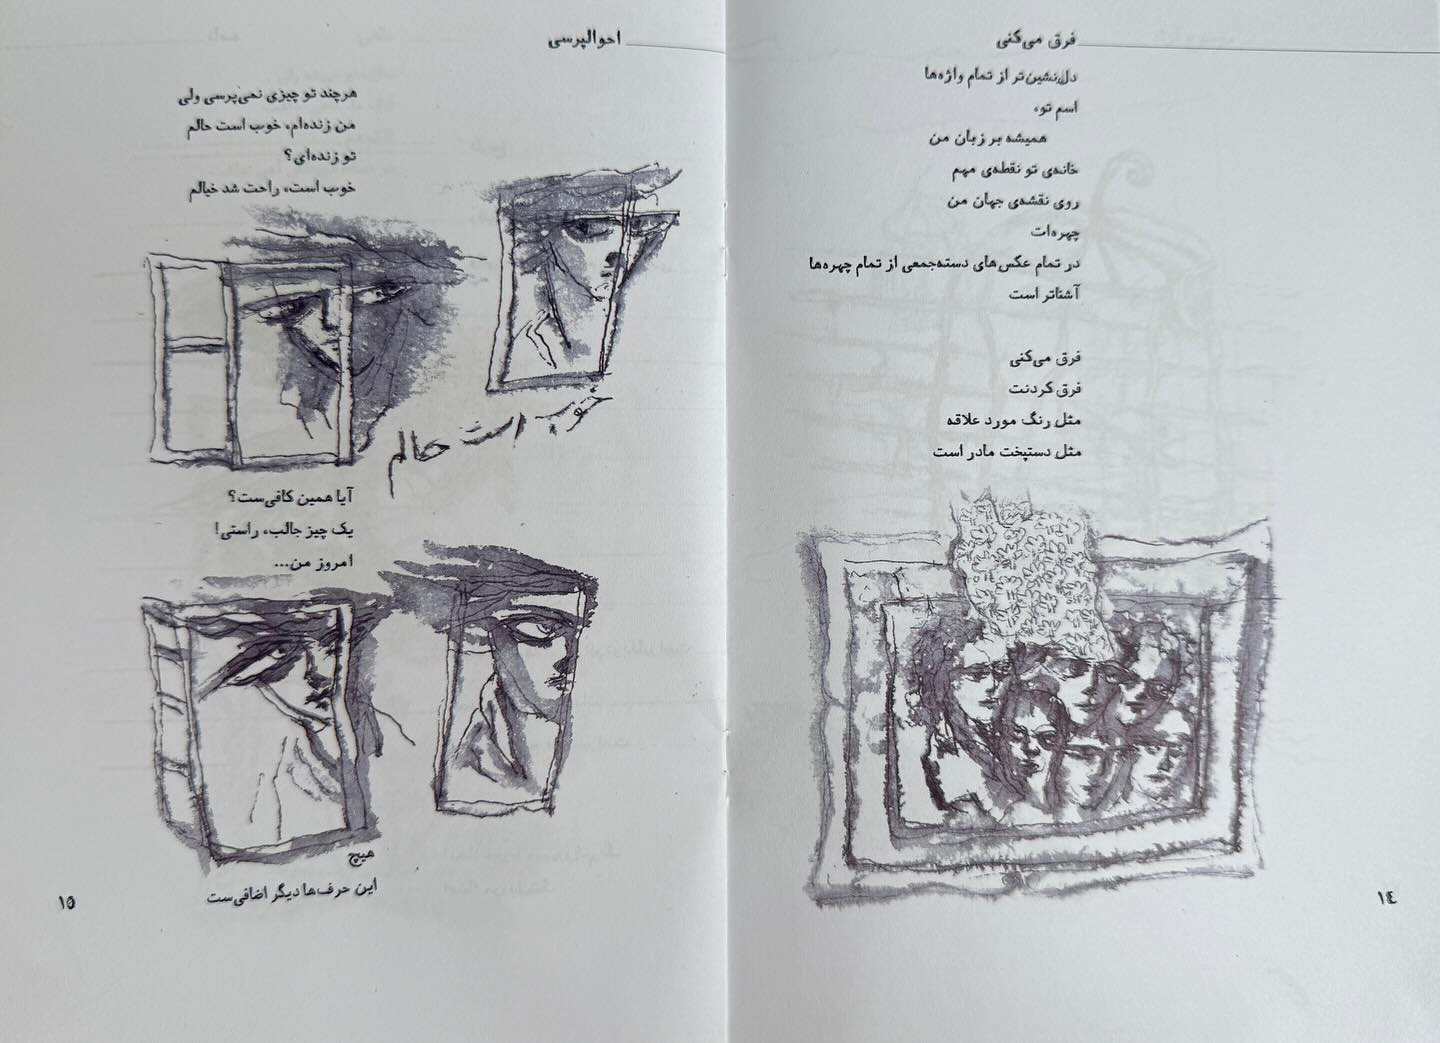 فرق می‌کنی
دل‌نشین‌تر از تمام واژه‌ها
اسم تو،
همیشه بر زبان من
خانه‌ی تو نقطه‌ی مهم
روی نقشه‌ی جهان من
چهره‌ات
در تمام عکس‌های دسته‌جمعی از تمام چهره‌ها
آشناتر است
فرق می‌کنی
فرق کردنت
مثل رنگ مورد علاقه
مثل دستپخت مادر است
١٤
احوالپرسی
هرچند تو چیزی نمی‌پرسی ولی
من زنده‌ام، خوب است حالم
تو زنده‌ای؟
خوب است، راحت شد خیالم
خوب است حالم
آیا همین کافی‌ست؟
یک چیز جالب، راستی!
امروز من...
هیچ
این حرف‌ها دیگر اضافی‌ست
١٥